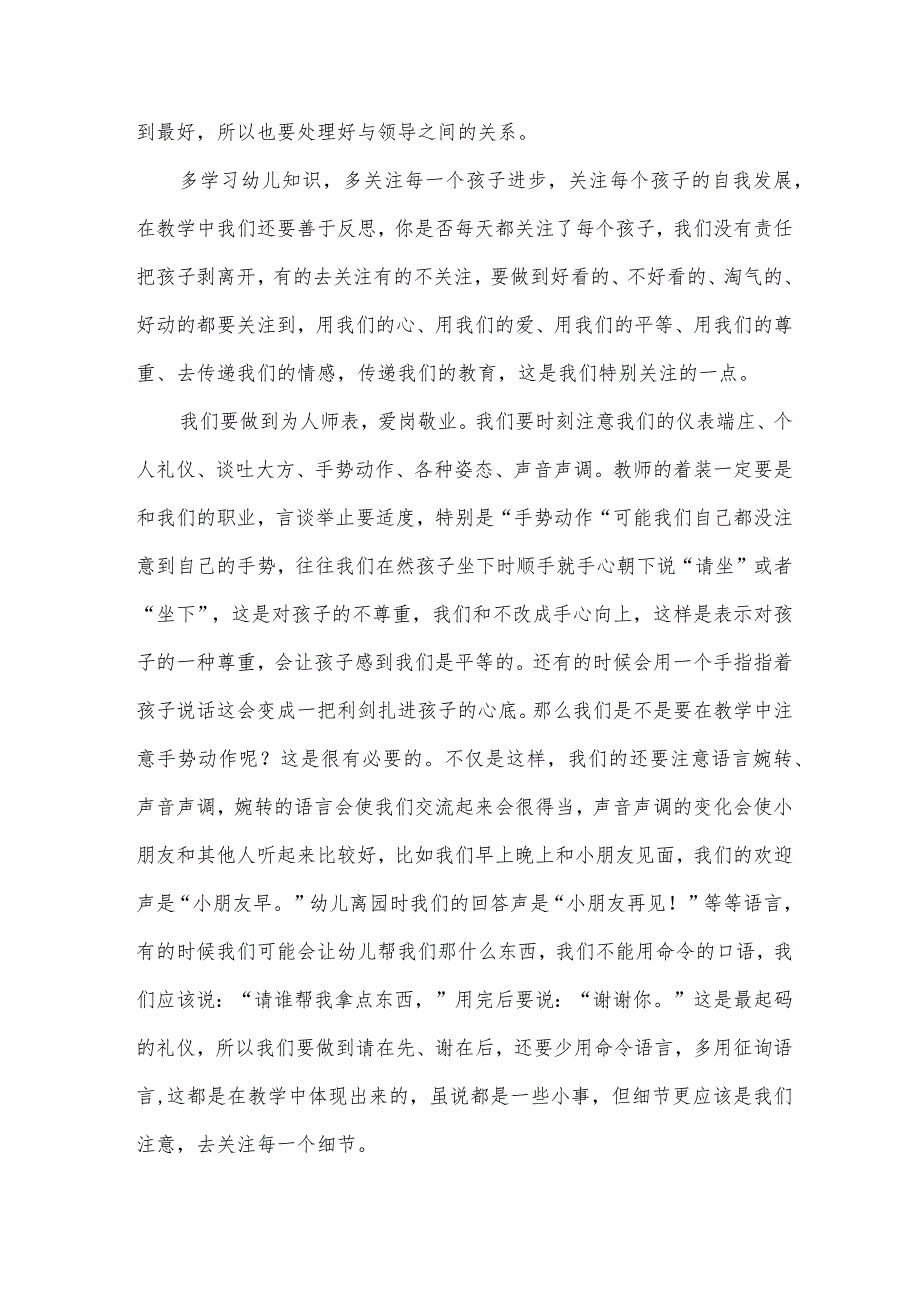 到最好，所以也要处理好与领导之间的关系。
多学习幼儿知识，多关注每一个孩子进步，关注每个孩子的自我发展，
在教学中我们还要善于反思，你是否每天都关注了每个孩子，我们没有责任
把孩子剥离开，有的去关注有的不关注，要做到好看的、不好看的、淘气的、
好动的都要关注到，用我们的心、用我们的爱、用我们的平等、用我们的尊
重、去传递我们的情感，传递我们的教育，这是我们特别关注的一点。
我们要做到为人师表，爱岗敬业。我们要时刻注意我们的仪表端庄、个
人礼仪、谈吐大方、手势动作、各种姿态、声音声调。教师的着装一定要是
和我们的职业，言谈举止要适度，特别是“手势动作“可能我们自己都没注
意到自己的手势，往往我们在然孩子坐下时顺手就手心朝下说“请坐”或者
“坐下”，这是对孩子的不尊重，我们和不改成手心向上，这样是表示对孩
子的一种尊重，会让孩子感到我们是平等的。还有的时候会用一个手指指着
孩子说话这会变成一把利剑扎进孩子的心底。那么我们是不是要在教学中注
意手势动作呢？这是很有必要的。不仅是这样，我们的还要注意语言婉转、
声音声调，婉转的语言会使我们交流起来会很得当，声音声调的变化会使小
朋友和其他人听起来比较好，比如我们早上晚上和小朋友见面，我们的欢迎
声是“小朋友早。”幼儿离园时我们的回答声是“小朋友再见！”等等语言，
有的时候我们可能会让幼儿帮我们那什么东西，我们不能用命令的口语，我
们应该说：“请谁帮我拿点东西，”用完后要说：“谢谢你。”这是最起码
的礼仪，所以我们要做到请在先、谢在后，还要少用命令语言，多用征询语
言,这都是在教学中体现出来的，虽说都是一些小事，但细节更应该是我们
注意，去关注每一个细节。